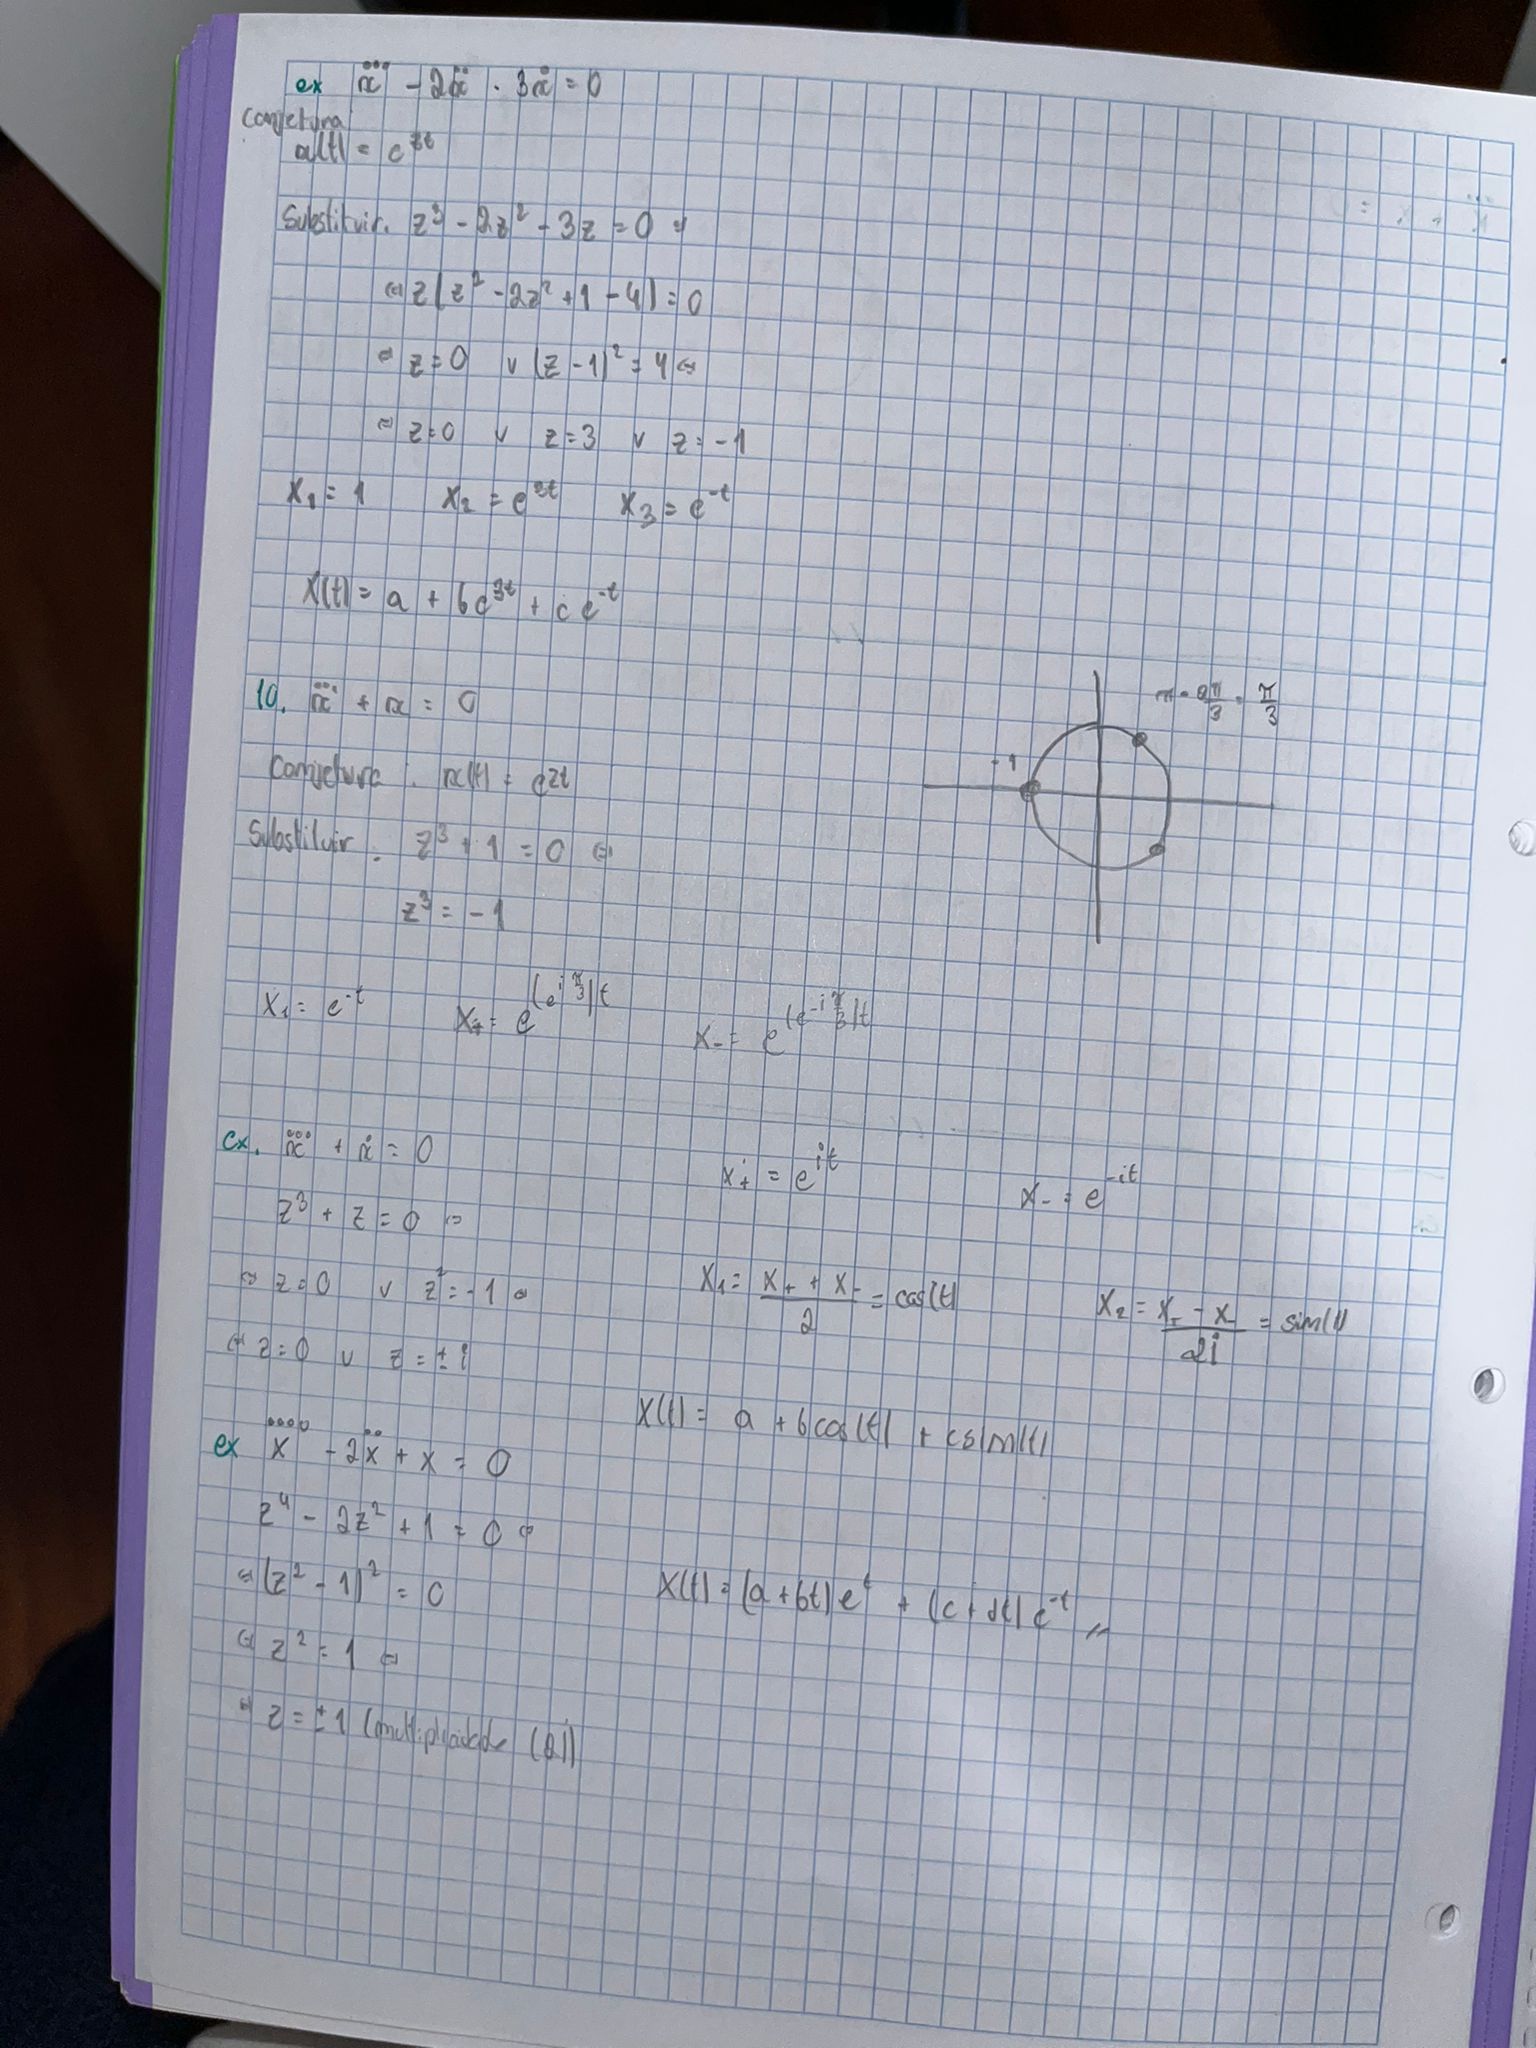 ex x⃛ - 2ẍ - 3ẋ = 0
Conjetura
x(t) = e^{zt}
Substituir. z³ - 2z² - 3z = 0 ⇔
⇔ z(z² - 2z² + 1 - 4) = 0
⇔ z = 0 ∨ (z - 1)² = 4 ⇔
⇔ z = 0 ∨ z = 3 ∨ z = -1
x₁ = 1 x₂ = e^{3t} x₃ = e^{-t}
X(t) = a + be^{3t} + ce^{-t}
10. x⃛ + x = 0
π - 2π/3 = π/3
-1
Conjetura: x(t) = e^{zt}
Substituir. z³ + 1 = 0 ⇔
z³ = -1
x₁ = e^{-t} x₊ = e^{(e^{iπ/3})t} x₋ = e^{(e^{-iπ/3})t}
ex. x⃛ + ẋ = 0
z³ + z = 0 ⇔
⇔ z = 0 ∨ z² = -1 ⇔
⇔ z = 0 ∨ z = ± i
x₊ = e^{it} x₋ = e^{-it}
x₁ = (x₊ + x₋)/2 = cos(t) x₂ = (x₊ - x₋)/2i = sin(t)
X(t) = a + bcos(t) + csin(t)
ex x⃜ - 2ẍ + x = 0
z⁴ - 2z² + 1 = 0 ⇔
⇔ (z² - 1)² = 0
⇔ z² = 1 ⇔
⇔ z = ± 1 (multiplicidade (2))
X(t) = (a + bt)e^{t} + (c + dt)e^{-t} //